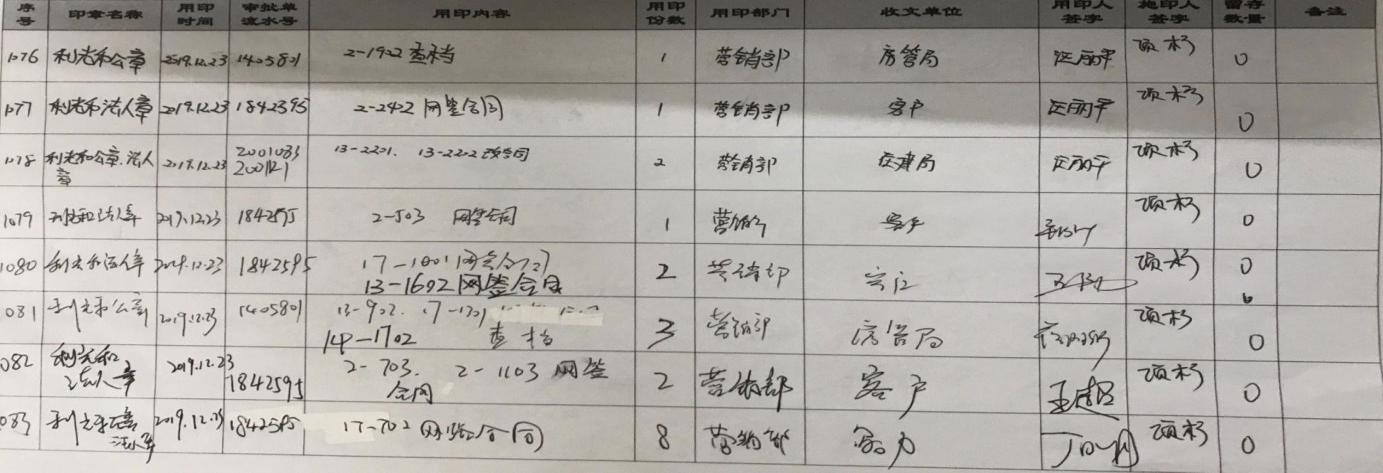 序号 印章名称 用印时间 审批单流水号 用印内容 用印份数 用印部门 收文单位 用印人签字 施印人签字 留存数量 备注
1076 利光和公章 2019.12.23 1405801 2-1902 查档 1 营销部 房管局 汪丽平 项杉 0
1077 利光和法人章 2019.12.23 1842595 2-2402 网签合同 1 营销部 客户 汪丽平 项杉 0
1078 利光和公章.法人章 2019.12.23 2001083 13-2201. 13-2202 改合同 2 营销部 住建局 汪丽平 项杉 0
1079 利光和法人章 2019.12.23 1842595 2-503 网签合同 1 营销部 客户 项杉 0
1080 利光和法人章 2019.12.23 1842595 17-1001 网签合同
13-1602 网签合同 2 营销部 客户 项杉 0
081 利光和公章 2019.12.23 1405801 13-902. 17-1201
14-1702 查档 3 营销部 房管局 项杉 0
082 利光和法人章 2019.12.23 1842595 2-703. 2-1103 网签合同 2 营销部 客户 王超 项杉 0
083 2019.12.23 1842595 17-702 网签合同 8 营销部 客户 项杉 0